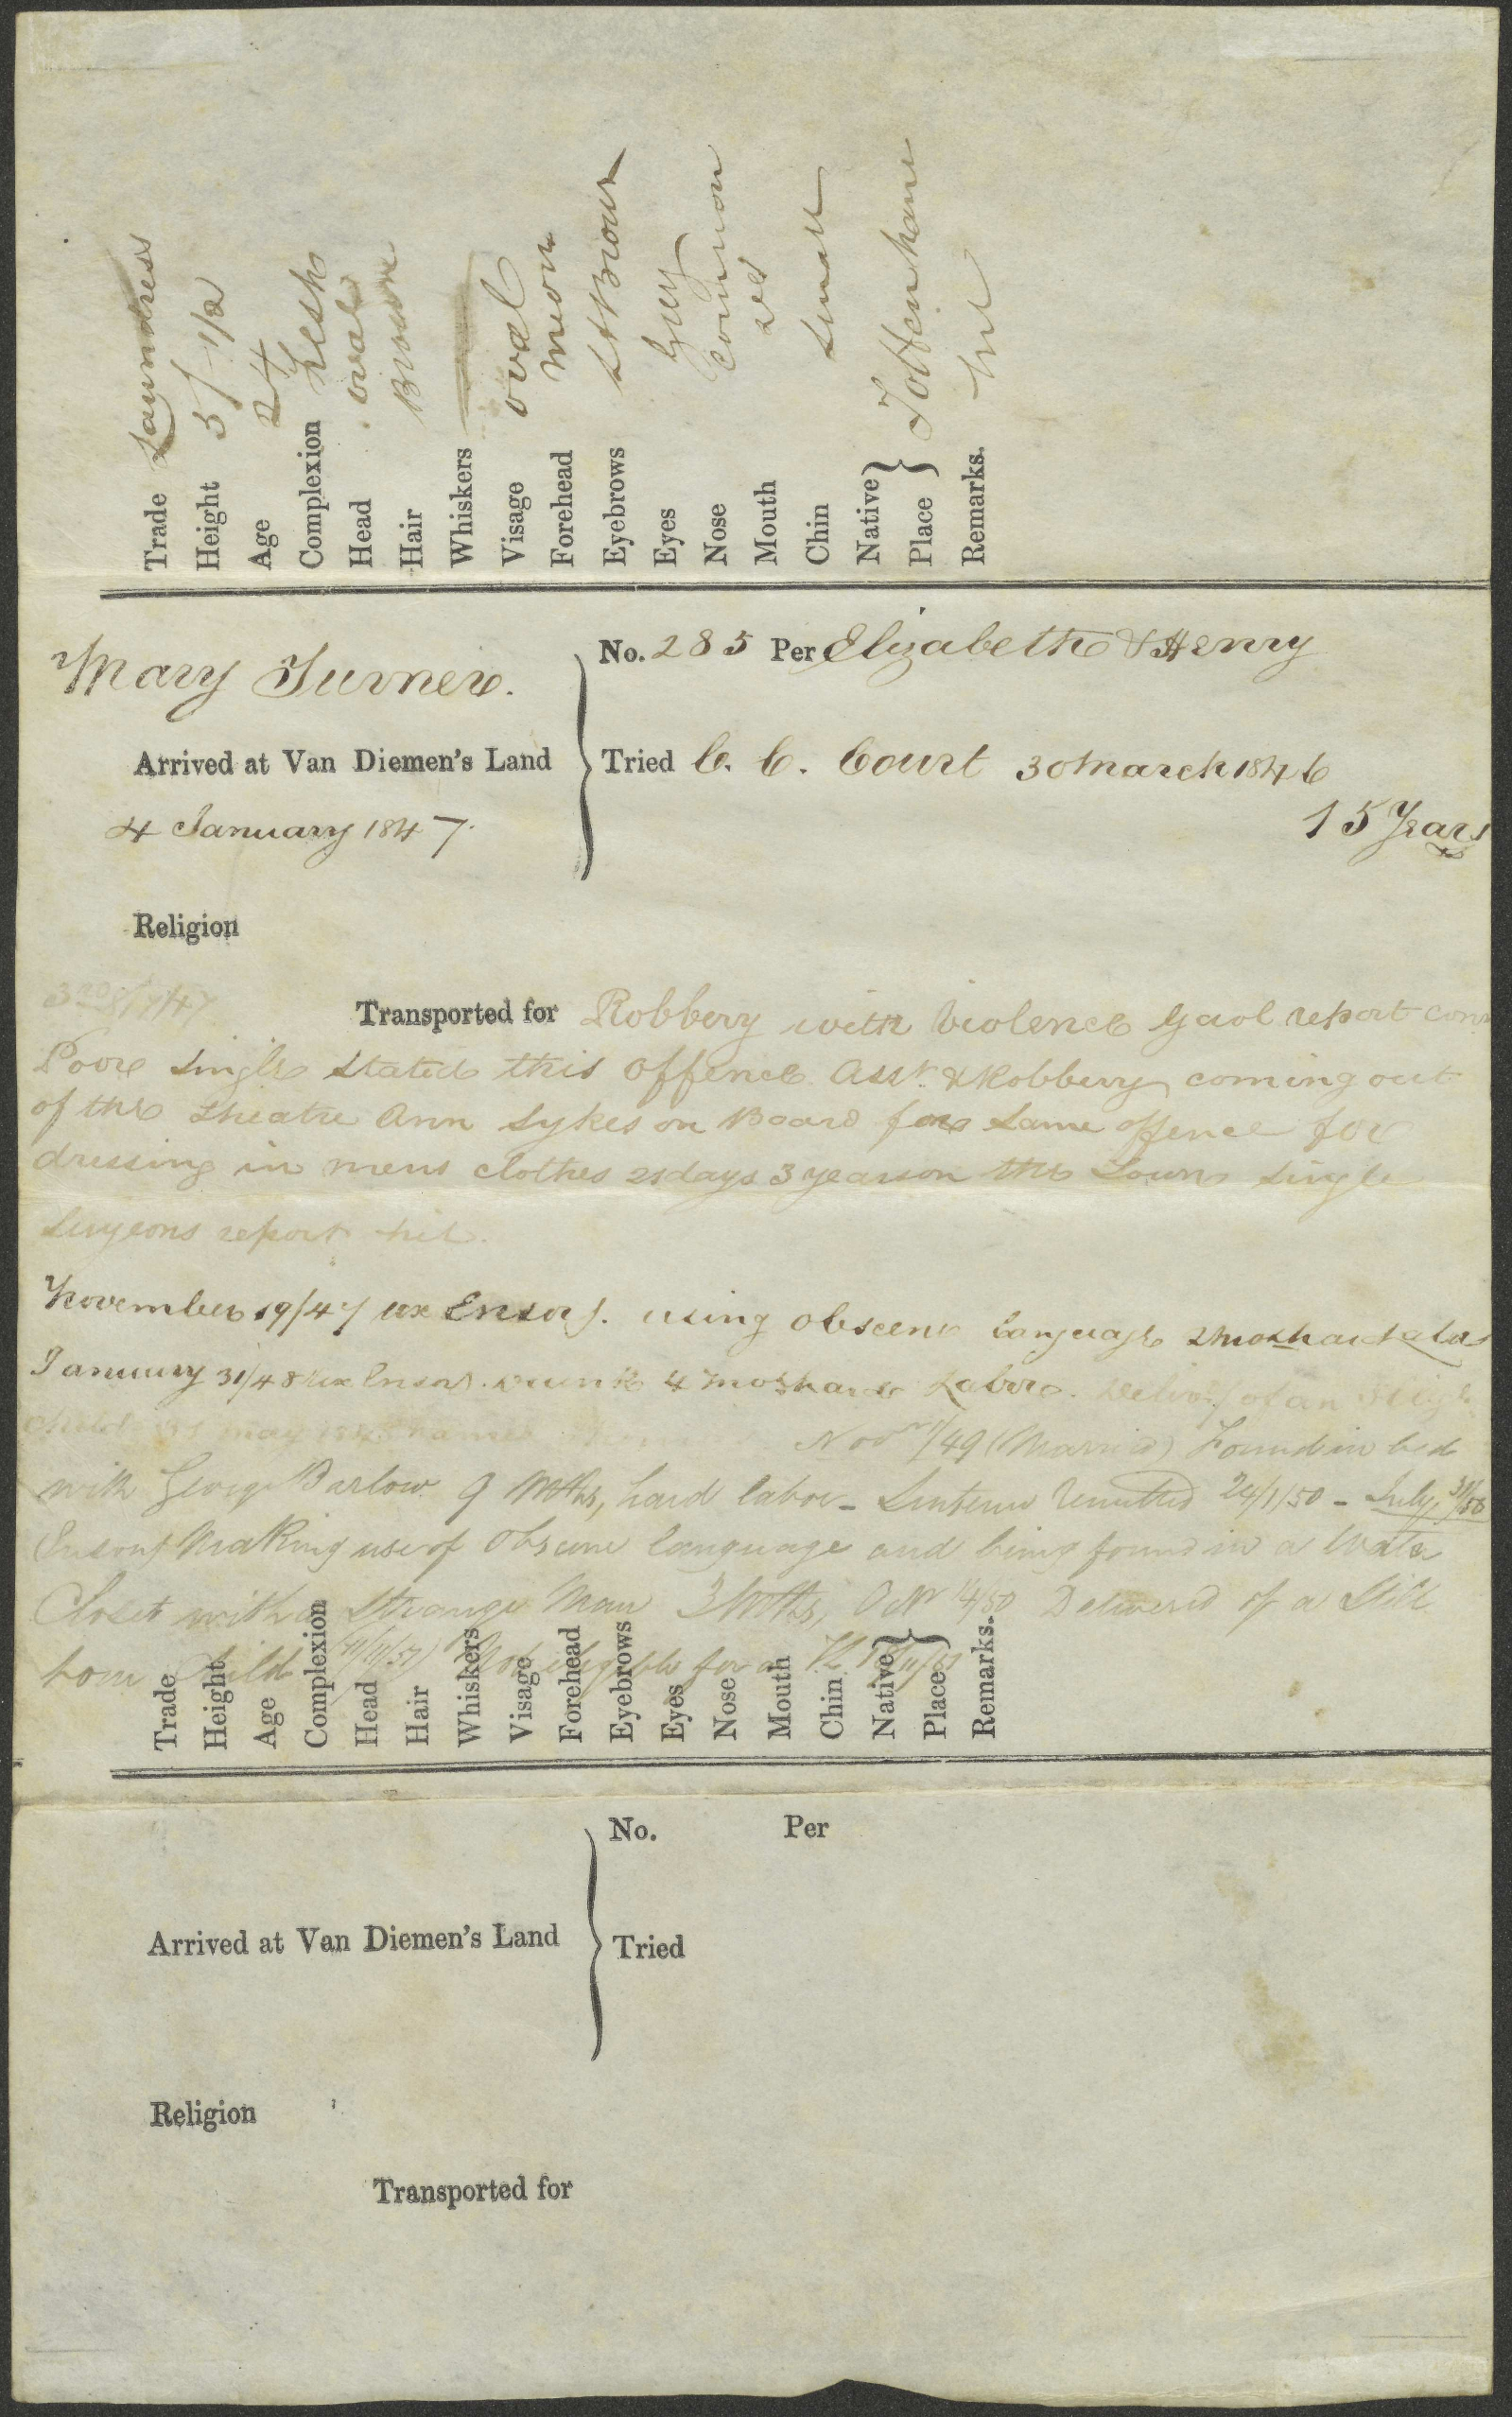 Trade Laundress
Height 5/- 1/2
Age 24
Complexion Fresh
Head oval
Hair Brown
Whiskers
Visage oval
Forehead
Eyebrows Lt Brown
Eyes Grey
Nose Common
Mouth
Chin Small
Native } Tottenham
Place
Remarks. Nil
Mary Turner.
No. 285 Per Elizabeth & Henry
Arrived at Van Diemen's Land
Tried C. C. Court 30 March 1846
4 January 1847.
15 Years
Religion
Transported for Robbery with violence Gaol report
Poor Single Stated this Offence Asst. & Robbery coming out
of the Theatre Ann Sykes on Board for same offence for
dressing in mens clothes 21 days 3 years on the Town Single
Surgeons report Nil.
November 19/47 using obscene language 2 mos hard
January 31/48 drunk 4 mos hard Labor. of an
Child May
Novr /49 (Married) Found in bed
with George Barlow 9 Mths, hard labor - Sentence remitted 24/1/50 - July
Making use of obscene language and being found in a Water
Closet with a strange Man 3 Mths, Delivered of a Still
born Child Not eligible for a
Trade
Height
Age
Complexion
Head
Hair
Whiskers
Visage
Forehead
Eyebrows
Eyes
Nose
Mouth
Chin
Native }
Place
Remarks.
No. Per
Arrived at Van Diemen's Land
Tried
Religion
Transported for